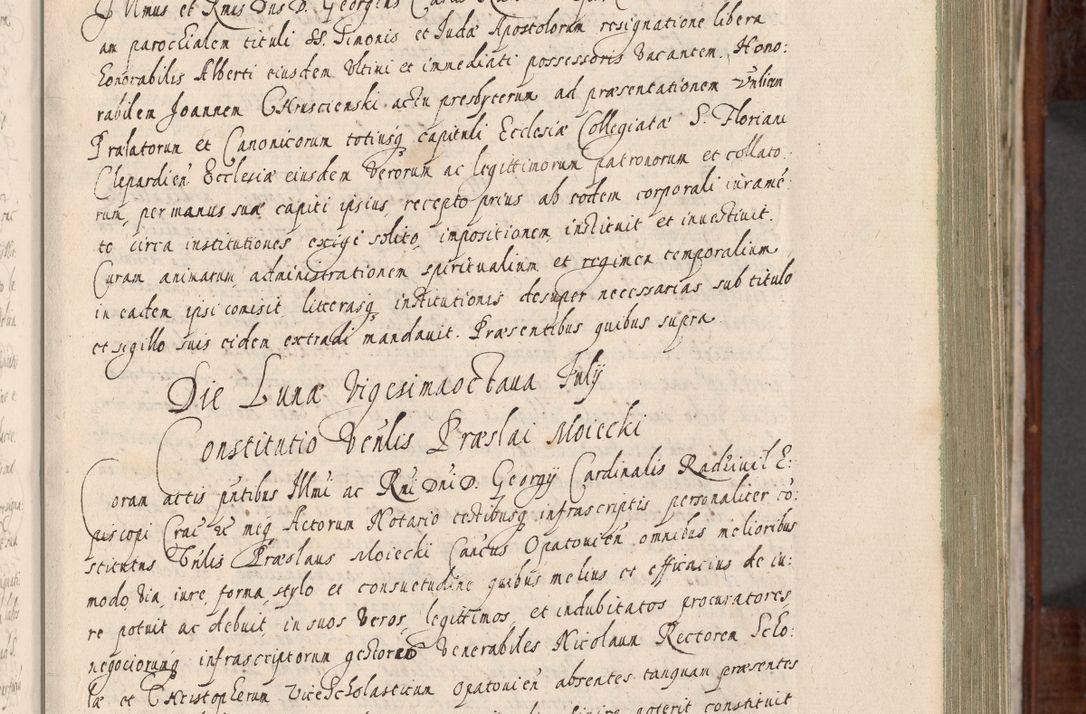 Illmus et Rmus Dns D. Georgius
am parochialem tituli SS. Simonis et Judæ Apostolorum resignatione libera
honorabilis Alberti eiusdem Vltimi et immediati possessoris Vacantem. Hono:
rabilem Joannem CHruscienski actu presbyterum ad præsentationem Vnlium
Prælatorum et Canonicorum totiusq capituli Ecclesiæ Collegiatæ S. Floriani
Clepardien Ecclesiæ eiusdem Verorum ac legittimorum patronorum et collato:
rum, per manus suæ capiti ipsius, recepto prius ab eodem corporali iuramē
to circa institutiones exigi solito, impositionem, instituit et inuestiuit.
Curam animarum, administrationem spiritualium et regimen temporalium
in eadem ipsi comisit, litterasq institutionis desuper necessarias sub titulo
et sigillo suis eidem extradi mandauit. Præsentibus quibus supra
Die Lunæ Vigesimaoctaua July
Constitutio Venlis Præslai Moiecki
Coram actis pntibus Illmi ac Rmi Dni D. Georgy Cardinalis Radziuil E:
piscopi Crac &c meq Actorum Notario testibusq infrascriptis personaliter cō:
stitutus Vnlis Præslaus Moiecki Cancus Opatouien omnibus melioribus
modo, Via, iure, forma, stylo et consuetudine quibus melius et efficacius de iu:
re potuit ac debuit, in suos Veros, legittimos, et indubitatos procuratores
negociorumq infrascriptorum gestores Venerabiles Nicolaum Rectorem Scho:
læ et CHristopherum ViceScholasticum Opatouien absentes tanquam præsentes
poterit constituit